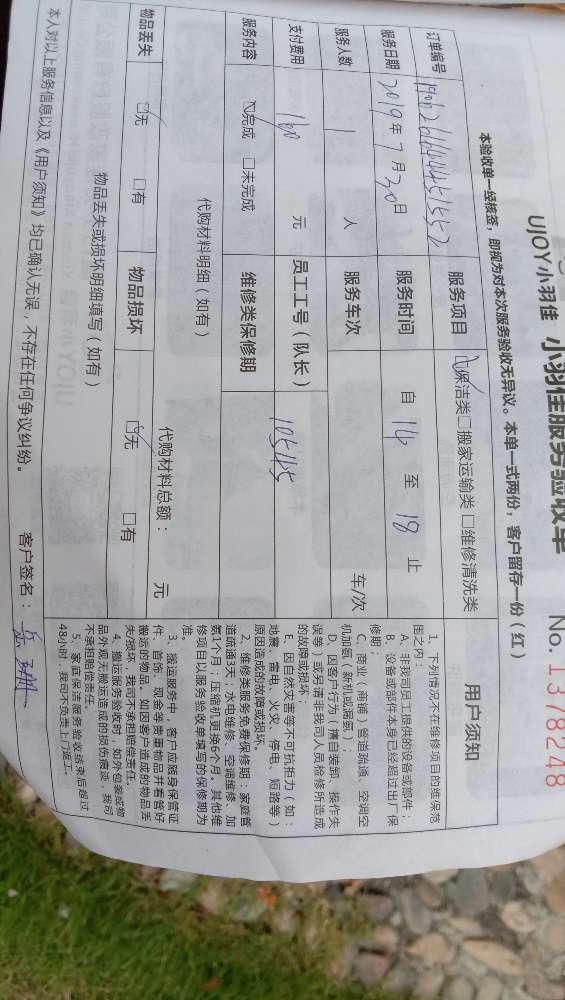 UJOY小羽佳 小羽佳服务验收单 No. 1378248
本验收单一经核签，即视为对本次服务验收无异议。本单一式两份，客户留存一份（红）
订单编号 服务项目 ☑保洁类□搬家运输类□维修清洗类
服务日期 2019年7月30日 服务时间 自 16 至 18 止
服务人数 1 人 服务车次 车/次
支付费用 160 元 员工工号（队长） 10545
服务内容 ☑完成 □未完成 维修类保修期
代购材料明细（如有）
代购材料总额： 元
物品丢失 ☑无 □有 物品损坏 ☑无 □有
物品丢失或损坏明细填写（如有）
本人对以上服务信息以及《用户须知》均已确认无误，不存在任何争议纠纷。 客户签名：
用户须知
1、下列情况不在维修项目的维保范
围之内：
A、非我司员工提供的设备或部件；
B、设备或部件本身已经超过出厂保
修期；
C、商业（商铺）管道疏通、空调空
机加氨（新机或漏氨）；
D、因客户行为（擅自装卸、操作失
误等）或另请非我司人员检修所造成
的故障或损坏；
E、因自然灾害等不可抗拒力（如：
地震、雷电、火灾、停电、短路等）
原因造成的故障或损坏。
2、维修类服务免费保修期：家庭管
道疏通3天；水电维修、空调维修、加
氨1个月；压缩机更换6个月。其他维
修项目以服务验收单填写的保修期为
准。
3、搬运服务中，客户应随身保管证
件、首饰、现金等贵重物品并看管好
搬运的物品。如因客户造成的物品丢
失/损坏，我司不承担赔偿责任。
4、搬运服务验收时，如外包装或物
品外观无搬运造成的损伤痕迹，我司
不承担赔偿责任。
5、家庭保洁服务验收结束后超过
48小时，我司不负责上门返工。